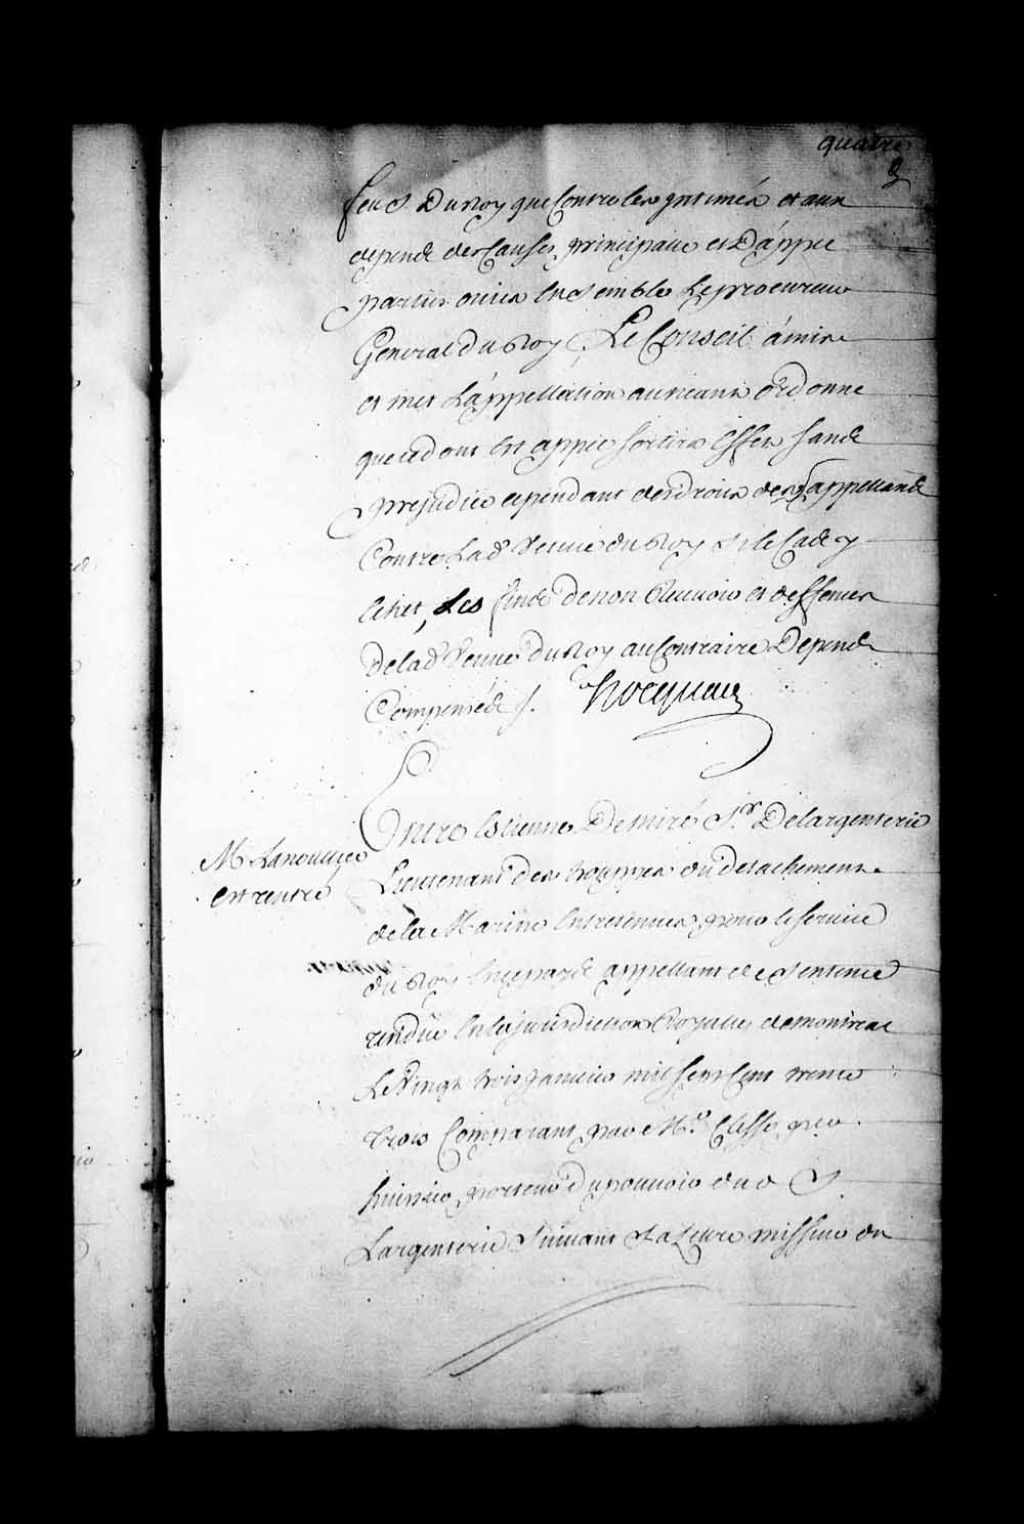 quatre
feu S Duroy que Contre les Intimés et aux
depends des Causes principalle et D'appel
parties ouies Ensemble Le procureur
General du Roy Le Conseil a mis
et met L'appellation au neant ordonne
que ce dont est appel sortira Effet sans
prejudice cependant des droits des appellants
Contre Lad Veuve duRoy s'ile Cas y
Echet, Les fins de non Recevoir et deffenses
de lad Veuve duRoy au Contraire Depends
Compensés ./. Hocquart
Entre Estienne De miré Sr. De largenterie
Mr Lanoullier
est rentré
Lieutenant des trouppes du detachement
de la Marine Entretenues pour le service
du Roy En ce païs appellant de sentence
rendüe En la jurisdiction Royalle de montreal
Le Vingt trois Janvier mil sept Cent trente
trois Comparant par Me. Clesse per
huissier porteur du pouvoir dud S.
Largenterie Suivant Sa Lettre missive du